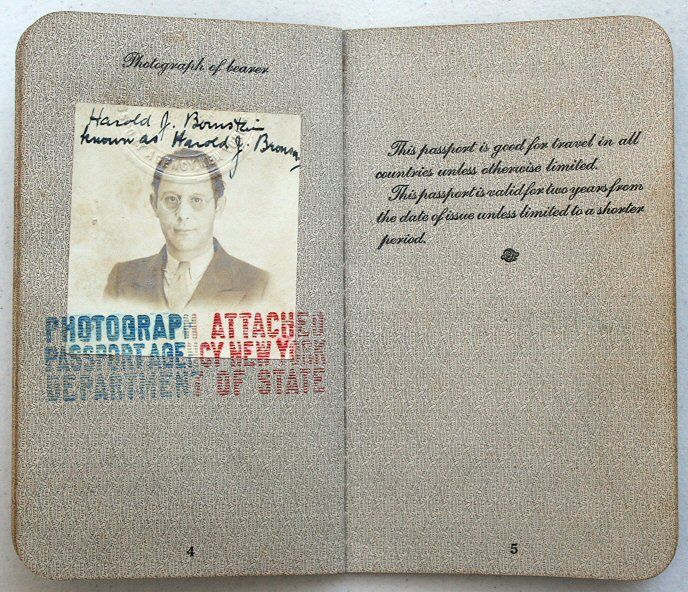 Photograph of bearer
Harold J. Bernstein
known as Harold J. Brown
AGENCY NEW
PHOTOGRAPH ATTACHED
PASSPORT AGENCY NEW YORK
DEPARTMENT OF STATE
4
This passport is good for travel in all
countries unless otherwise limited.
This passport is valid for two years from
the date of issue unless limited to a shorter
period.
5